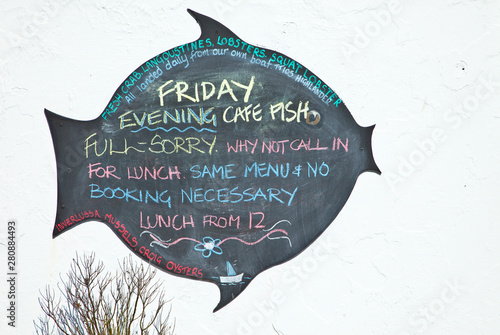 FRESH CRAB, LANGOUSTINES, LOBSTERS, SQUAT LOBSTER
All landed daily from our own boat
FRIDAY
EVENING CAFE FISH
FULL - SORRY. WHY NOT CALL IN
FOR LUNCH. SAME MENU & NO
BOOKING NECESSARY
LUNCH FROM 12
INVERLUSSA MUSSELS, CROIG OYSTERS
#280884493